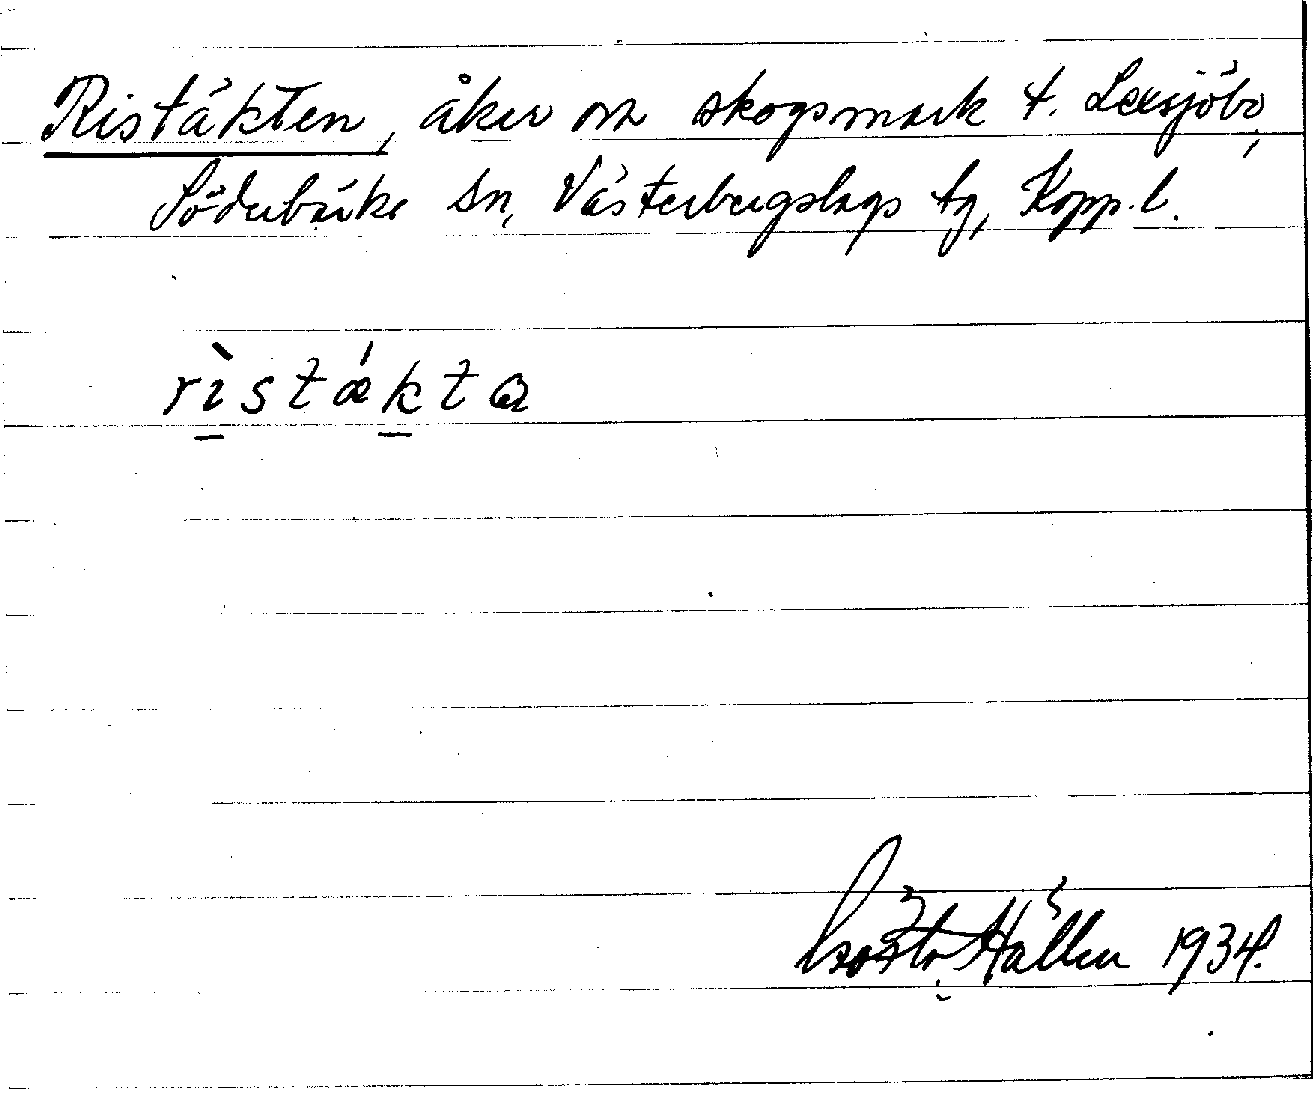 Ristäkten, åker och skogsmark t. Lexsjöbo,
Söderbärke sn, Västerbergslags tg, Kopp. l.
rìstǽkta
Gösta Hallén 1934.